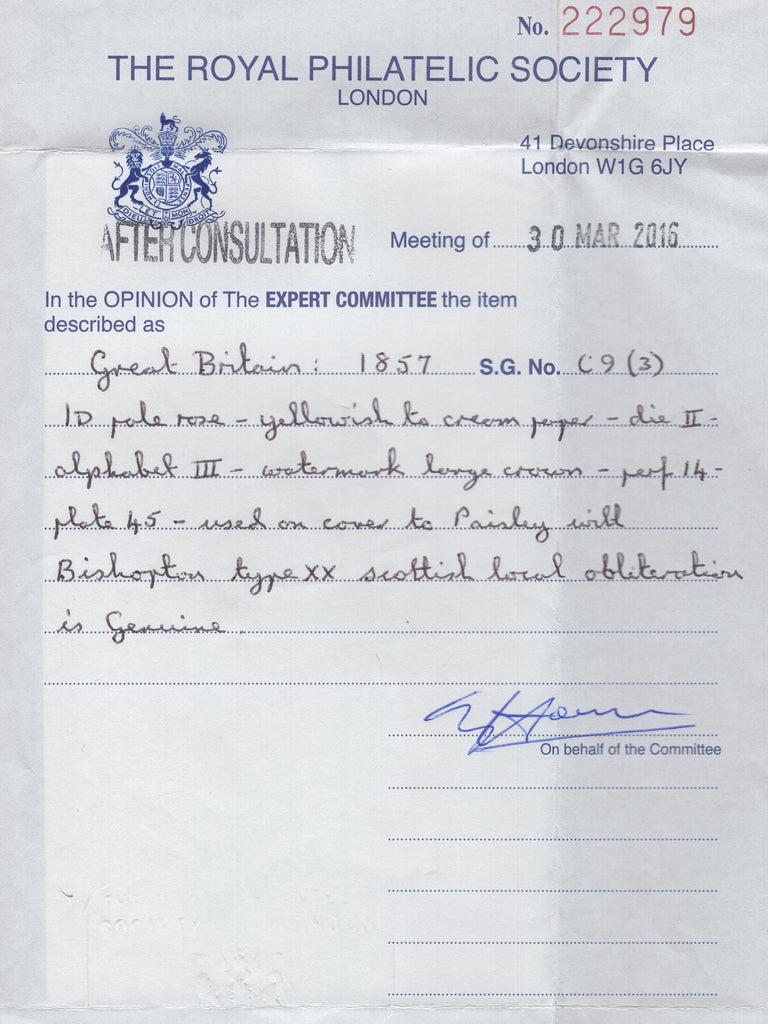 No. 222979
THE ROYAL PHILATELIC SOCIETY
LONDON
41 Devonshire Place
London W1G 6JY
AFTER CONSULTATION
Meeting of 30 MAR 2016
In the OPINION of The EXPERT COMMITTEE the item
described as
Great Britain: 1857 S.G. No. C9 (3)
1D pale rose - yellowish to cream paper - die II -
alphabet III - watermark large crown - perf 14 -
plate 45 - used on cover to Paisley with
Bishopton type XX scottish local obliteration
is Genuine.
On behalf of the Committee